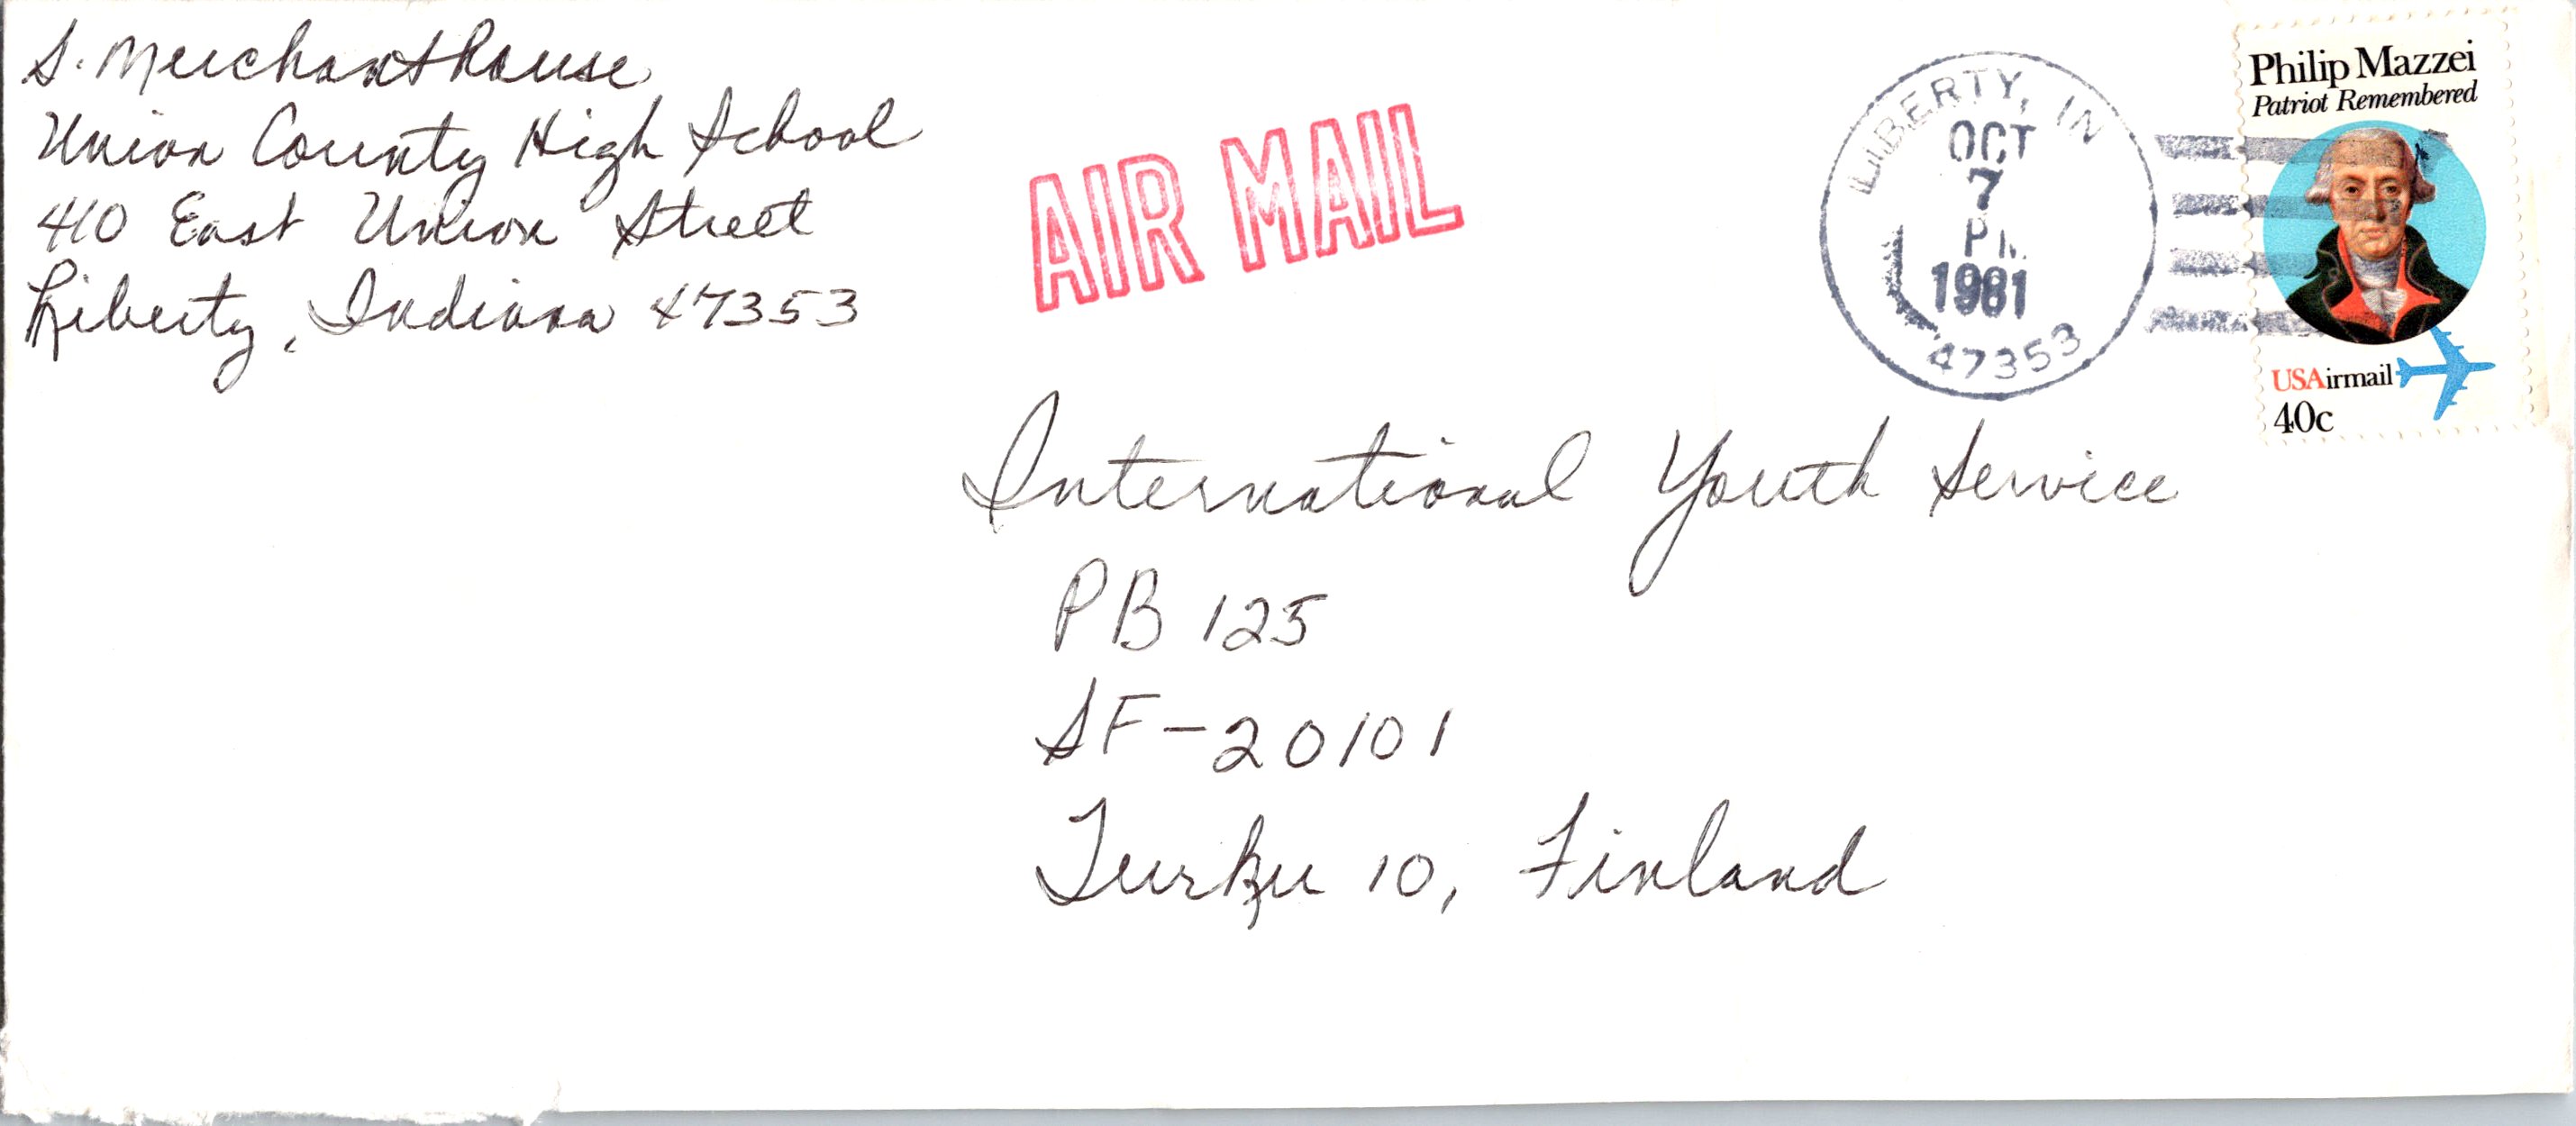 S. Merchanthouse
Union County High School
410 East Union Street
Liberty, Indiana 47353
AIR MAIL
LIBERTY, IN
OCT
7
PM
1981
47353
Philip Mazzei
Patriot Remembered
USAirmail
40c
International Youth Service
PB 125
SF-20101
Turku 10, Finland